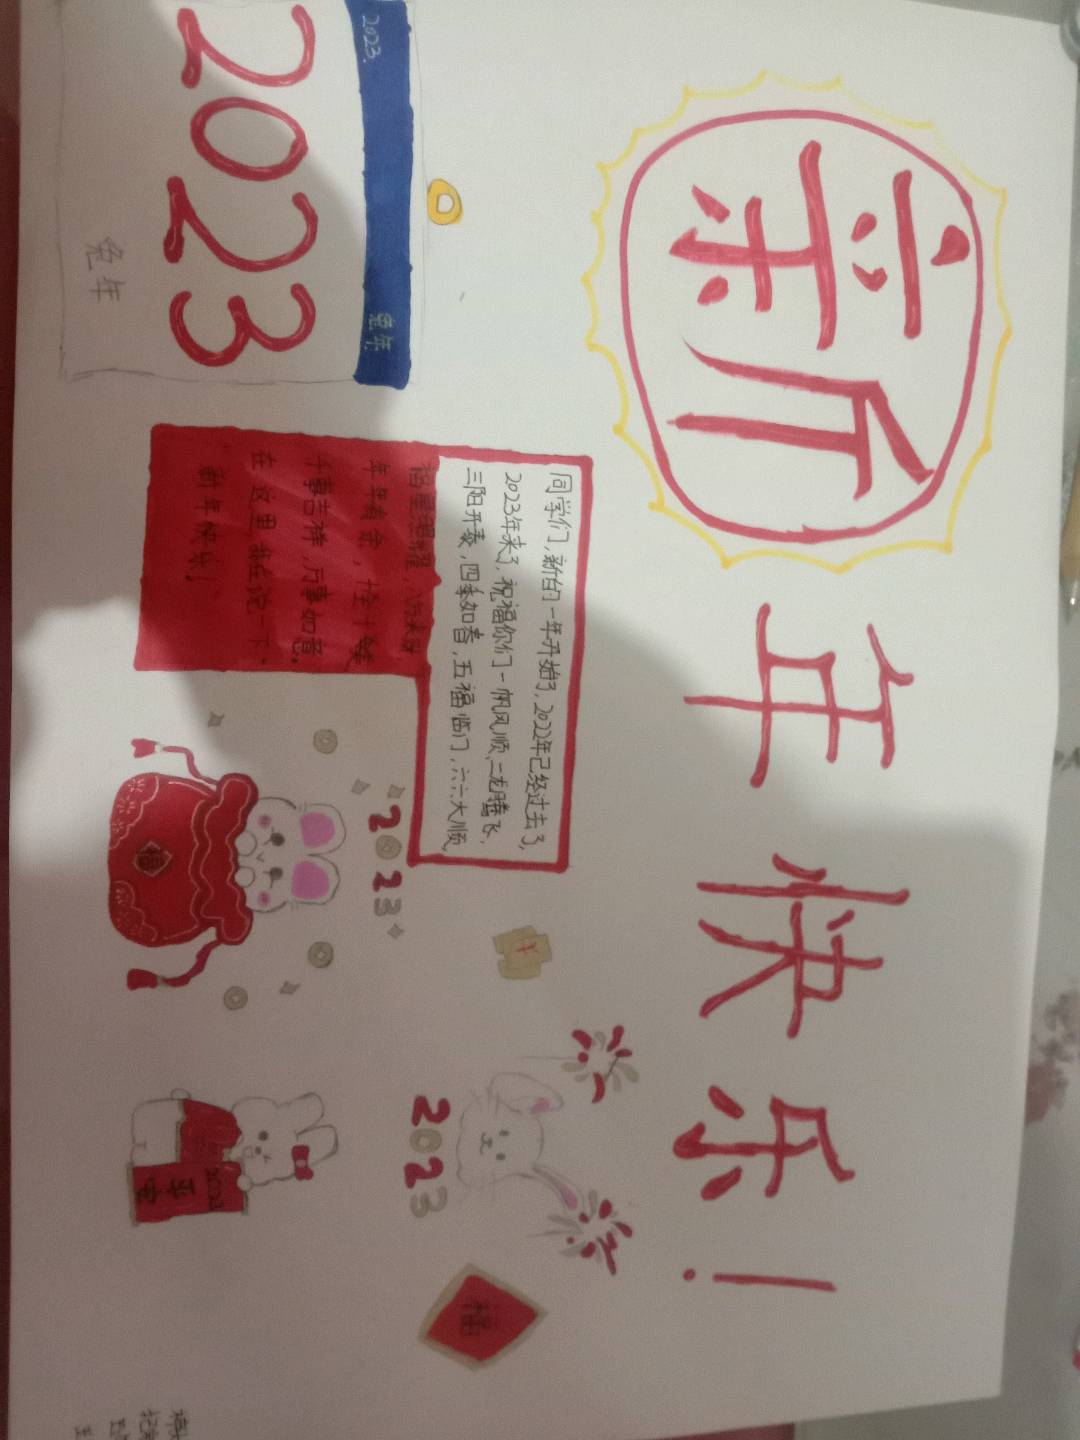 新年快乐！
2023.
兔年.
2023
兔年
同学们,新的一年开始了,2022年已经过去了,
2023年来了,祝福你们一帆风顺,二龙腾飞,
三阳开泰,四季如春,五福临门,六六大顺
年年有余,
千事吉祥,万事如意。
在这里我在说一下。
新年快乐!
2023
福
2023
2023
平
安
福